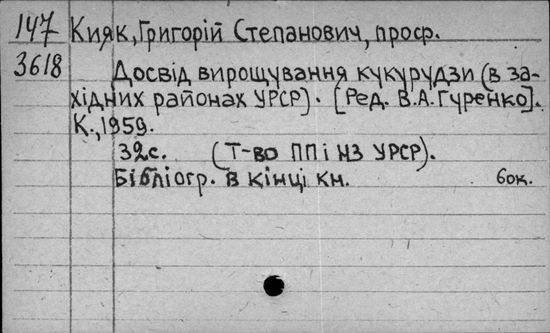 147 Кияк, Григорій Степанович, проф.
3618 Досвід вирощування кукурудзи (в за-
хідних районах УРСР). [Ред. В.А.Гуренко].
К., 1959.
32с. (Т-во ППіНЗ УРСР).
Бібліогр. в кінці кн. 6ок.